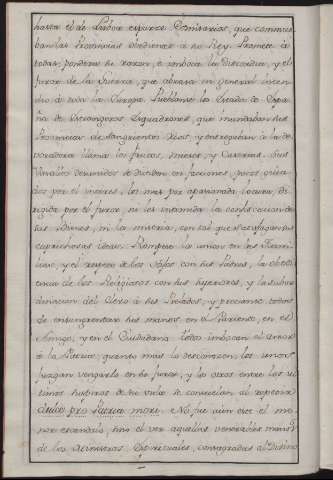 hasta el de Lisboa esparce Comisarios, que conmue
ban las Provincias obedientes a su Rey. Promete á
todas, pondera su razon, e introduce la Discordia, y el
furor de la Guerra, que abrasa en general incen
dio á toda la Europa. Pueblanse los Estados de Espa
ña de Extrangeros Esquadrones, que inundaban sus
Provincias de sangrientos Rios, y entregaban a la de
voradora llama los frutos, mieses, y Casernas. Sus
Vasallos desunidos se dividen en facciones, unos guia
dos por el interes, los mas por apasionada locura, di
rigida por el furor, ni les intimida la confiscacion de
sus Bienes, ni la muerte, con tal que satisfagan sus
caprichosas ideas. Rompese la union en las Fami
lias, y el respeto de los Hijos con sus Padres, la obe
diencia de los Religiosos con sus Superiores, y la subor
dinacion del Clero á sus Prelados, y preciase todos
de ensangrentar sus manos en el Pariente, en el
Amigo, y en el Ciudadano. Todos invocan el amor
á la Patria, quanto mas la descomponen, los unos
juzgan vengarla en su furor, y los otros entre los ul
timos horrores de su vida se consuelan al repetir:
dulce pro Patria mori. No fue aun este el me
nor escandalo, sino el ver aquellas venerables manos
de los Ministros Espirituales, consagradas al Divino